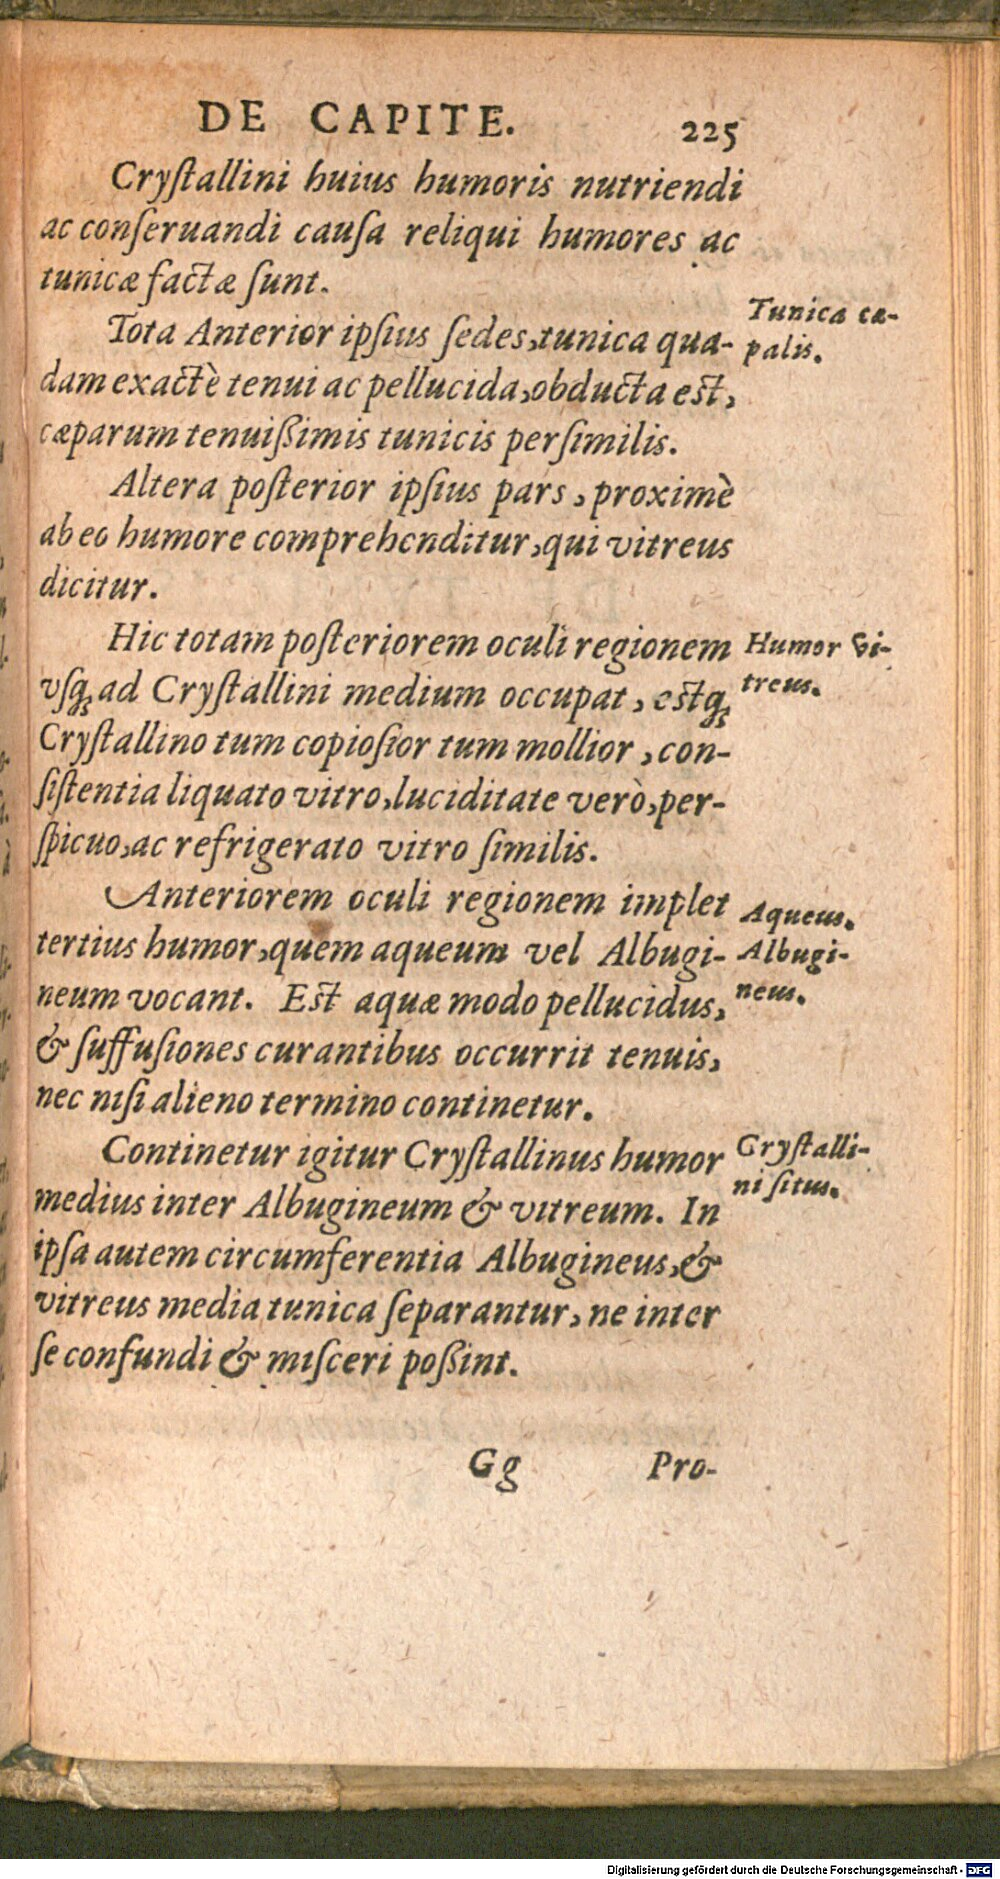 DE CAPITE. 225
Cryſtallini huius humoris nutriendi
ac conſeruandi cauſa reliqui humores ac
tunicæ factæ ſunt.
Tota Anterior ipſius ſedes, tunica qua-
dam exactè tenui ac pellucida, obducta est,
cæparum tenuißimis tunicis perſimilis.
Tunica cæ-
palis.
Altera poſterior ipſius pars, proximè
ab eo humore comprehenditur, qui vitreus
dicitur.
Hic totam poſteriorem oculi regionem
vſq; ad Cryſtallini medium occupat, estq;
Cryſtallino tum copioſior tum mollior, con-
ſiſtentia liquato vitro, luciditate verò, per-
ſpicuo, ac refrigerato vitro ſimilis.
Humor vi-
treus.
Anteriorem oculi regionem implet
tertius humor, quem aqueum vel Albugi-
neum vocant. Est aquæ modo pellucidus,
& ſuffuſiones curantibus occurrit tenuis,
nec niſi alieno termino continetur.
Aqueus.
Albugi-
neus.
Continetur igitur Cryſtallinus humor
medius inter Albugineum & vitreum. In
ipſa autem circumferentia Albugineus, &
vitreus media tunica ſeparantur, ne inter
ſe confundi & miſceri poßint.
Cryſtalli-
ni ſitus.
Gg Pro-
Digitalisierung gefördert durch die Deutsche Forschungsgemeinschaft - DFG